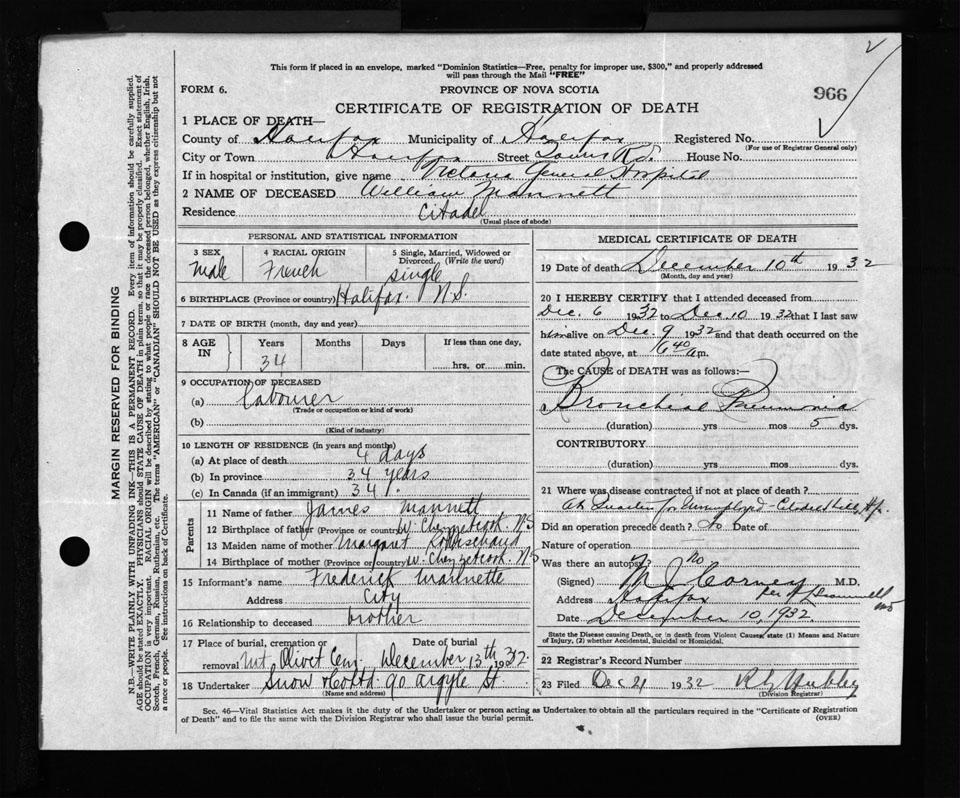 This form if placed in an envelope, marked "Dominion Statistics—Free, penalty for improper use, $300," and properly addressed
will pass through the Mail "FREE"
FORM 6.
PROVINCE OF NOVA SCOTIA
966
CERTIFICATE OF REGISTRATION OF DEATH
1 PLACE OF DEATH—
County of Halifax Municipality of Halifax Registered No.
(For use of Registrar General only)
City or Town Halifax Street Tower Rd. House No.
If in hospital or institution, give name Victoria General Hospital
2 NAME OF DECEASED William Mannett
Residence Citadel
(Usual place of abode)
PERSONAL AND STATISTICAL INFORMATION
3 SEX 4 RACIAL ORIGIN 5 Single, Married, Widowed or Divorced. (Write the word)
Male French single
6 BIRTHPLACE (Province or country) Halifax. N.S.
7 DATE OF BIRTH (month, day and year)
8 AGE IN Years Months Days If less than one day,
34 hrs. or min.
9 OCCUPATION OF DECEASED
(a) Labourer
(Trade or occupation or kind of work)
(b)
(Kind of industry)
10 LENGTH OF RESIDENCE (in years and months)
(a) At place of death 4 days
(b) In province 34 years
(c) In Canada (if an immigrant) 34.
Parents
11 Name of father James Mannett
12 Birthplace of father (Province or country) W. Chezzetcook. N.S
13 Maiden name of mother Margaret
14 Birthplace of mother (Province or country) W. Chezzetcook. N.S
15 Informant's name Frederick Mannette
Address City
16 Relationship to deceased brother
17 Place of burial, cremation or removal Mt. Olivet Cem. Date of burial December 13th 1932
18 Undertaker Snow & Co Ltd. 90 Argyle St
(Name and address)
MEDICAL CERTIFICATE OF DEATH
19 Date of death December 10th 1932
(Month, day and year)
20 I HEREBY CERTIFY that I attended deceased from
Dec. 6 1932 to Dec. 10 1932 that I last saw
him alive on Dec. 9 1932 and that death occurred on the
date stated above, at 6 40 a.m.
The CAUSE of DEATH was as follows:—
Bronchial Pneumonia
(duration) yrs mos 5 dys.
CONTRIBUTORY
(duration) yrs mos dys.
21 Where was disease contracted if not at place of death?
At Quarters for Unemployed - Citadel Hill, Hfx.
Did an operation precede death? No Date of
Nature of operation
Was there an autopsy? No
(Signed) M.J. Carney M.D.
Address Halifax
Date December 10, 1932
State the Disease causing Death, or in deaths from Violent Causes, state (1) Means and
Nature of Injury, (2) whether Accidental, Suicidal or Homicidal.
22 Registrar's Record Number
23 Filed Dec 21 1932
(Division Registrar)
Sec. 46—Vital Statistics Act makes it the duty of the Undertaker or person acting as Undertaker to obtain all the particulars required in the "Certificate of Registration
of Death" and to file the same with the Division Registrar who shall issue the burial permit.
(OVER)
MARGIN RESERVED FOR BINDING
N.B.—WRITE PLAINLY WITH UNFADING INK—THIS IS A PERMANENT RECORD. Every item of information should be carefully supplied.
AGE should be stated EXACTLY. PHYSICIANS should STATE CAUSE OF DEATH in plain terms, so that it may be properly classified. Exact statement of
OCCUPATION is very important. RACIAL ORIGIN will be described by stating to what people or race the deceased person belonged, whether English, Irish,
Scotch, French, German, Russian, Ruthenian, etc. The terms "AMERICAN" or "CANADIAN" SHOULD NOT BE USED as they express citizenship but not
a race or people. See instructions on back of Certificate.